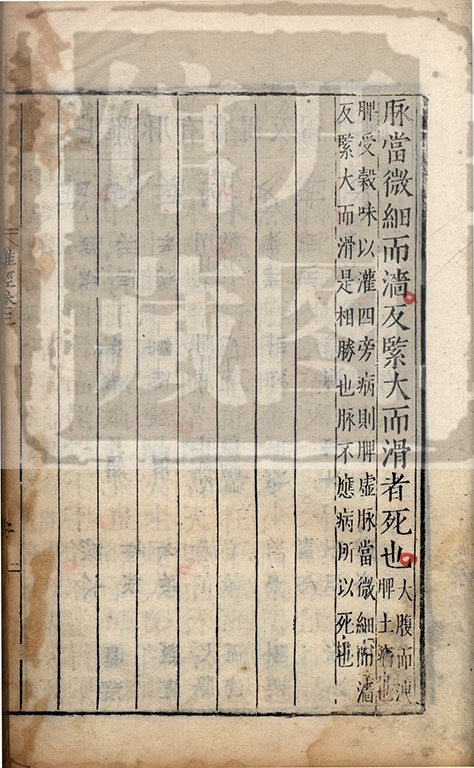 脉當微細而濇反緊大而滑者死也
大腹而洩
脾土病也
脾受穀味以灌四旁病則脾虛脉當微細而濇
反緊大而滑是相勝也脉不應病所以死也
難經卷三